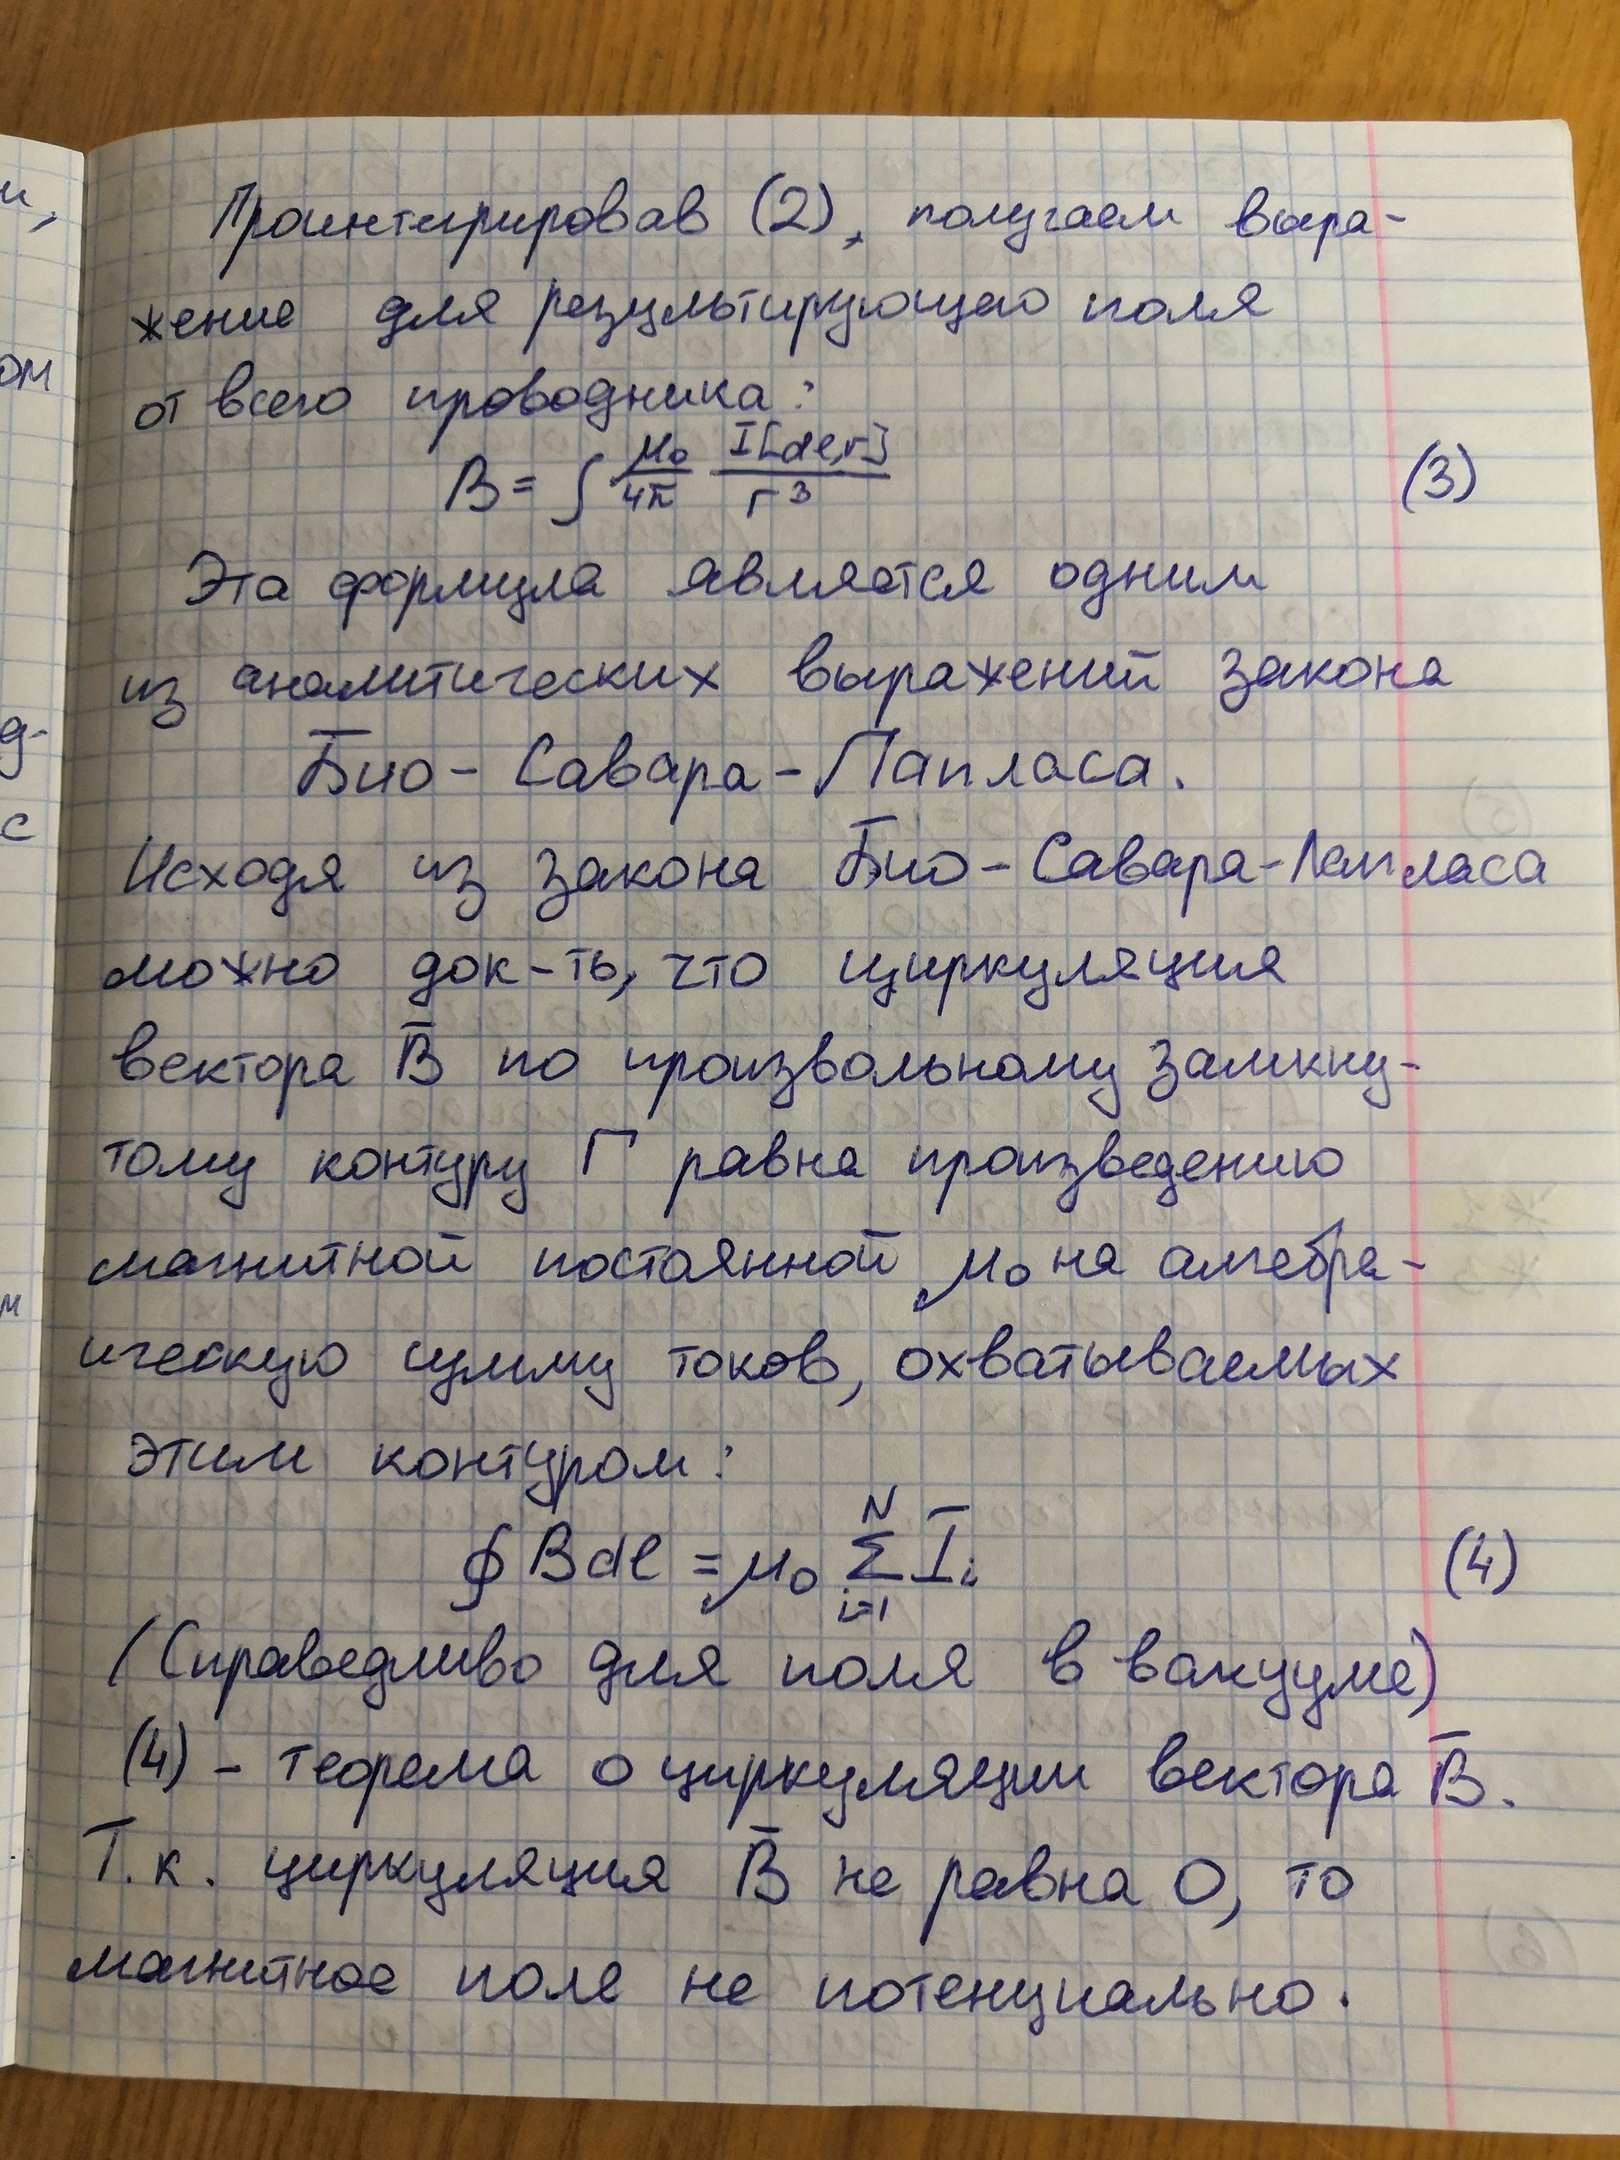 Проинтегрировав (2), получаем выра-
жение для результирующего поля
от всего проводника:
B = ∫ μ₀/4π I[dl,r]/r³ (3)
Эта формула является одним
из аналитических выражений закона
Био - Савара - Лапласа.
Исходя из закона Био - Савара - Лапласа
можно док-ть, что циркуляция
вектора B̄ по произвольному замкну-
тому контуру Г равна произведению
магнитной постоянной μ₀ на алгебра-
ическую сумму токов, охватываемых
этим контуром:
∮ B dl = μ₀ Σᵢ₌₁ᴺ Iᵢ (4)
(Справедливо для поля в вакууме)
(4) - теорема о циркуляции вектора B̄.
Т.к. циркуляция B̄ не равна 0, то
магнитное поле не потенциально.